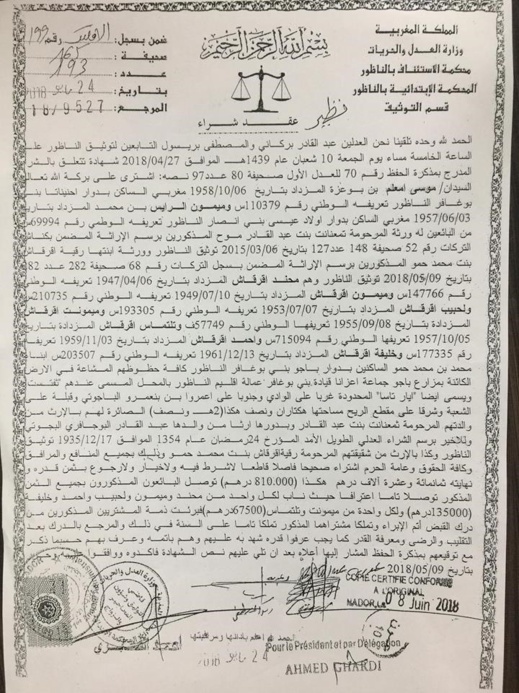 المملكة المغربية
وزارة العدل والحريات
محكمة الاستئناف بالناظور
المحكمة الابتدائية بالناظور
قسم التوثيق
بسم الله الرحمن الرحيم
ضمن بسجل: رقم 199
صحيفة:
عدد: 193
بتاريخ: 24 2018
المرجع: 18/9527
نظير
عقد شراء
الحمد لله وحده تلقينا نحن العدلين عبد القادر بركاني والمصطفى بريسول التابعين لتوثيق الناظور على
الساعة الخامسة مساء يوم الجمعة 10 شعبان عام 1439هـ الموافق 2018/04/27 شهادة تتعلق بالشراء
المدرج بمذكرة الحفظ رقم 70 للعدل الأول صحيفة 80 عدد 97 نصه: اشترى على بركة الله تعالى
السيدان/ موسى امعلم بن بوعزة المزداد بتاريخ 1958/10/06 مغربي الساكن بدوار بني
بوغافر الناظور تعريفه الوطني رقم 110379س وميمون الرايس بن محمد المزداد بتاريخ
1957/06/03 مغربي الساكن بدوار اولاد عيسى بني انصار الناظور تعريفه الوطني رقم 69994س
من البائعين له ورثة المرحومة تمعنانت بنت عبد القادر موح المذكورين برسم الإراثة المضمن بكناش
التركات رقم 52 صحيفة 148 عدد 127 بتاريخ 2015/03/06 توثيق الناظور وورثة ابنتها رقية اقرقاش
بنت محمد حمو المذكورين برسم الإراثة المضمن بسجل التركات رقم 68 صحيفة 282 عدد 282
بتاريخ 2018/05/09 توثيق الناظور وهم محند اقرقاش المزداد بتاريخ 1947/04/06 تعريفه الوطني
رقم 147766س وميمون اقرقاش المزداد بتاريخ 1949/07/10 تعريفه الوطني رقم 210735س
ونحبيب اقرقاش المزداد بتاريخ 1953/07/07 تعريفه الوطني رقم 193305س وميمونت اقرقاش
المزدادة بتاريخ 1955/09/08 تعريفها الوطني رقم 57749ف وتلتماس اقرقاش المزدادة بتاريخ
1957/10/05 تعريفها الوطني رقم 715094س واحمد اقرقاش المزداد بتاريخ 1959/11/03 تعريفه
177335س وخليفة اقرقاش المزداد بتاريخ 1961/12/13 تعريفه الوطني رقم 203507س ابناء
محمد بن محمد حمو الساكنين بدوار ياجو بني بوغافر الناظور كافة حظوظهم المشاعة في الارض
الكائنة بمزارع ياجو جماعة اعزانا قيادة بني بوغافر عمالة اقليم الناظور بالمحل المسمى عندهم
ويسمى ايضا "ايار تاسا" المحدودة غربا على الوادي وجنوبا على اعمروا بن بنعمرو الياجوتي وقبلة على
الشعبة وشرقا على مقطع الريح مساحتها هكتاران ونصف هكذا(2هـ ونصف) الصائرة لهم بالإرث من
والدتهم المرحومة تمعنانت بنت عبد القادر وبدورها ارثا من والدها عبد القادر البوجافري
وللاخير برسم الشراء العدلي الطويل الأمد المورخ 24 رمضان عام 1354 الموافق 1935/12/17 توثيق
الناظور وكذا بالإرث من شقيقتهم المرحومة رقية اقرقاش بنت محمد حمو وذلك بجميع المنافع والمرافق
وكافة الحقوق وعامة الحرم اشتراء صحيحا فاصلا قاطعا لاشرط فيه ولاخيار ولارجوع بثمن قدره و
نهايته ثمانمائة وعشرة الاف درهم هكذا (810.000 درهم) توصل البائعون المذكورون بجميع الثمن
المذكور توصلا تاما اعترافا حيث ناب لكل واحد من محند وميمون ولحبيب واحمد وخليفة
(135000درهم) ولكل واحدة من ميمونت وتلتماس (67500درهم) فبرئت ذمة المشتريين المذكورين من
درك القبض أتم الإبراء وتملكا مشتراهما المذكور تملكا تاما على السنة في ذلك والمرجع بالدرك بعد
التقليب والرضى ومعرفة القدر كما يجب عرفوا قدره شهد به عليهم وهم باتمه وعرف بهم حسبما ذكر
مع توقيعهم بمذكرة الحفظ المشار إليها أعلاه بعد ان تلي عليهم نص الشهادة فاكدوه ووافقوا
بتاريخ 2018/05/09
COPIE CERTIFIE CONFORME
A L'ORIGINAL
NADOR, LE 08 Juin 2018
Pour le Président et par Délégation
AHMED GHARDI
24 2018